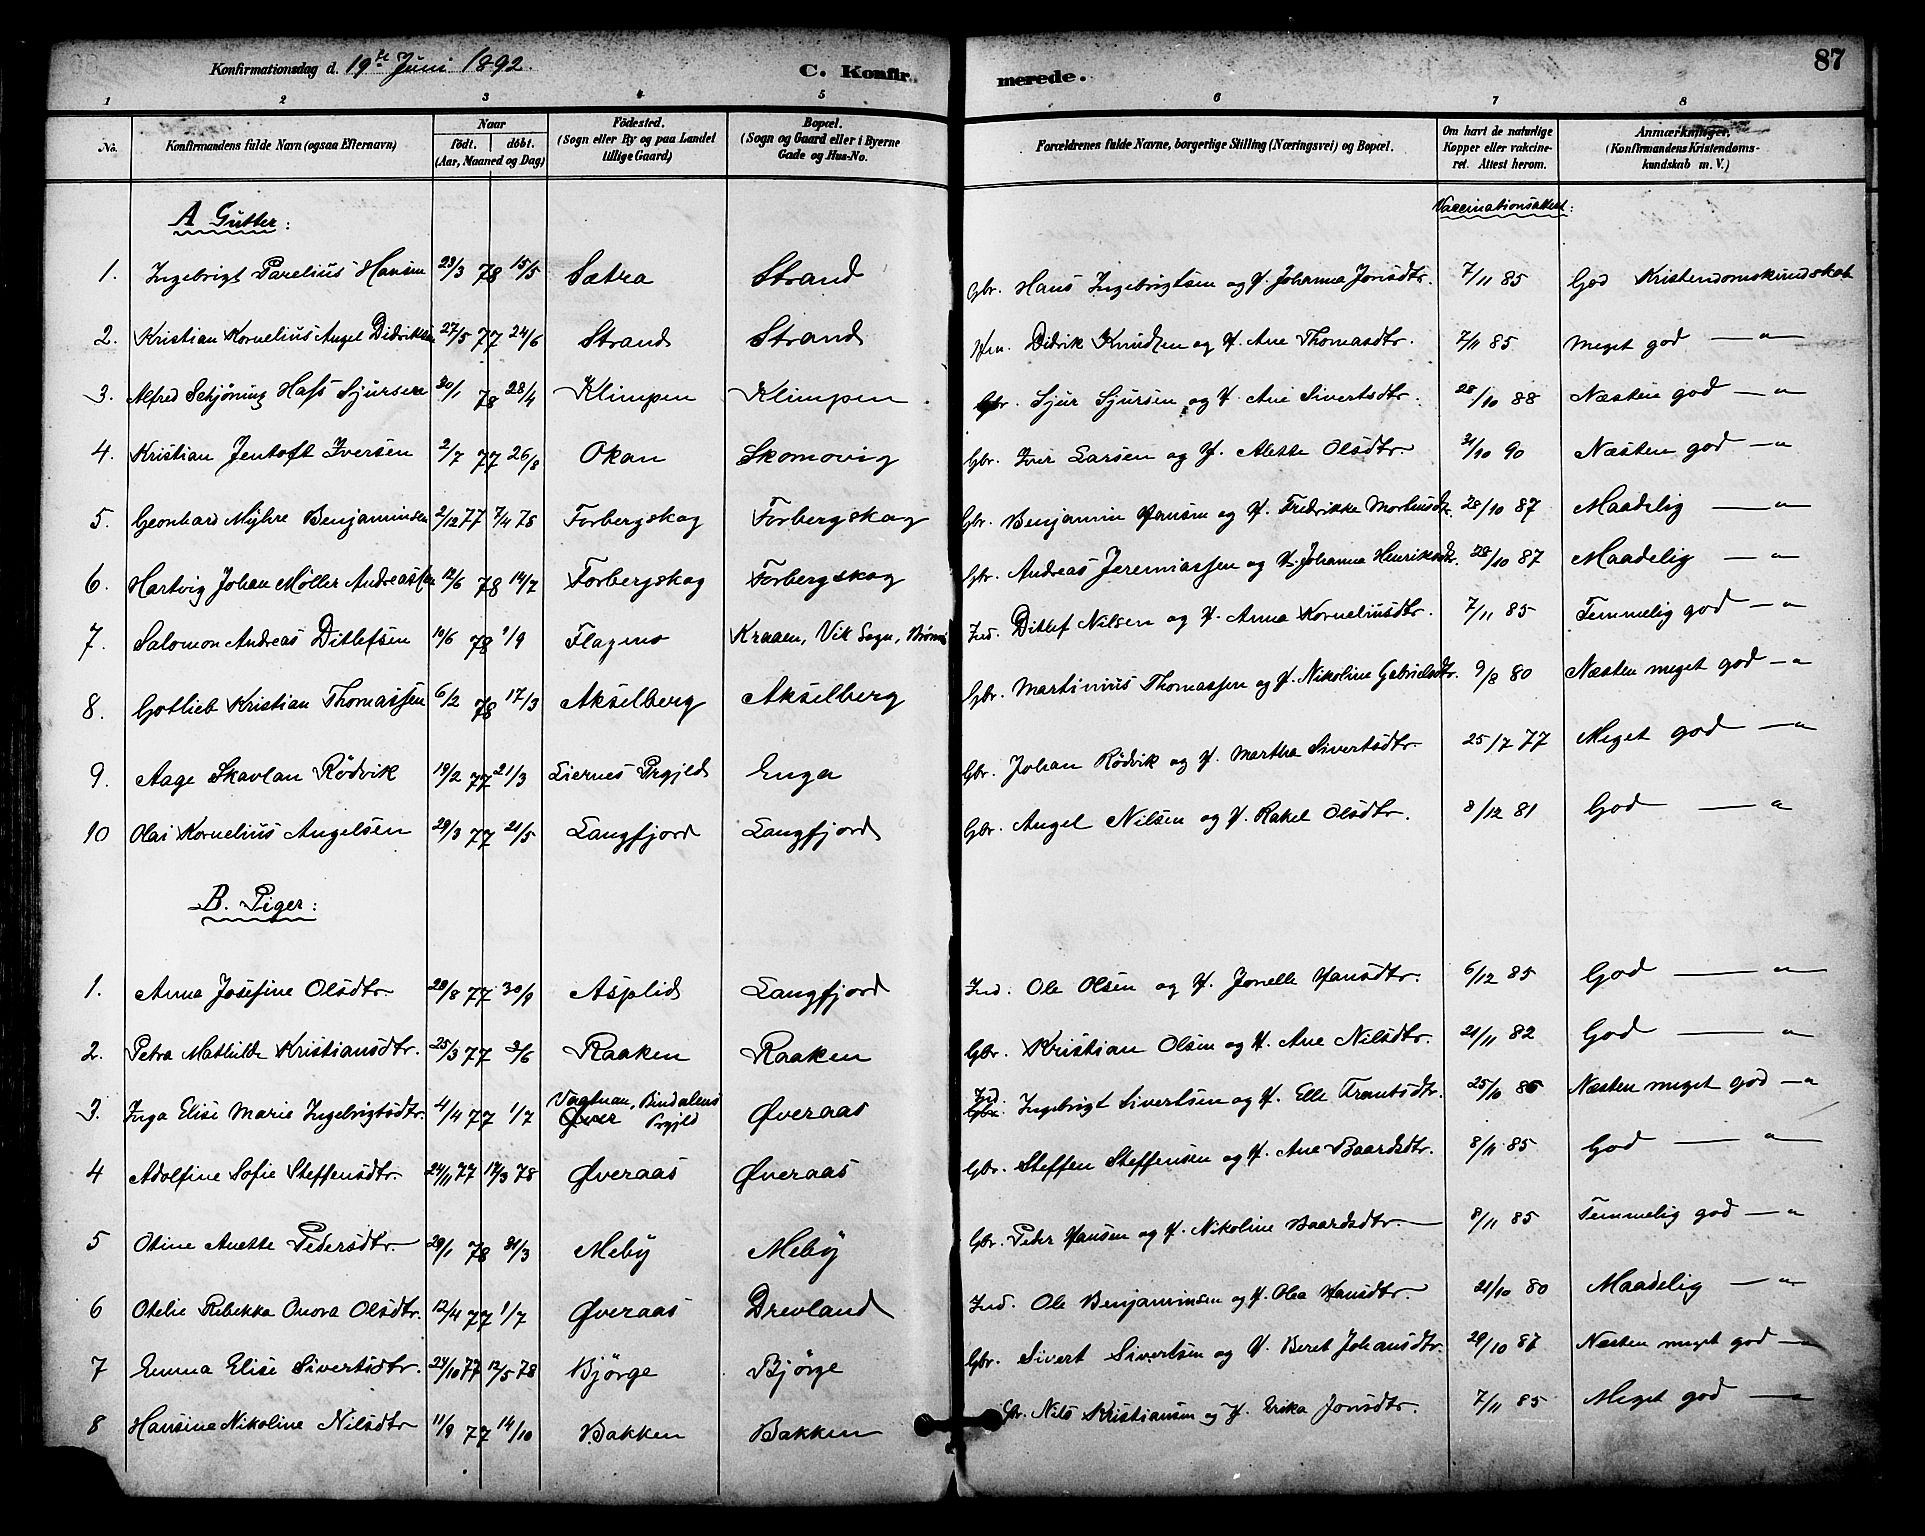 Konfirmationsdag d. 19de Juni 1892. C. Konfirmerede. 87
1 2 3 4 5 6 7 8
No. Konfirmandens fulde Navn (ogsaa Efternavn) Naar født. døbt. (Aar, Maaned og Dag) Fødested. (Sogn eller By og paa Landet tillige Gaard) Bopæl. (Sogn og Gaard eller i Byerne Gade og Hus-No. Forældrenes fulde Navne, borgerlige Stilling (Næringsvei) og Bopæl. Om havt de naturlige Kopper eller vakcineret. Attest herom. Anmærkninger. (Konfirmandens Kristendomskundskab m. V.)
A Gutter: Vaccinationsattest:
1. Ingebrigt Parelius Hansen 23/3 78 15/5 Sætra Strand Gbr. Hans Ingebrigtsen og H. Johanna Jonsdtr. 7/11 85 God Kristendomskundskab
2. Kristian Kornelius Angel Didriksen 27/5 77 24/6 Strand Strand Didrik Knudsen og H. Ane Thomasdtr. 7/11 85 Meget god — " —
3. Alfred Schjøning Hass Sjursen 30/1 78 28/4 Klimpen Klimpen. Gbr. Sjur Sjursen og H. Ane Sivertsdtr. 28/10 88 Næsten god — " —
4. Kristian Jentoft Iversen 2/7 77 26/8 Okan Skomovig Gbr. Iver Larsen og H. Alette Olsdtr. 31/10 90 Næsten god — " —
5. Geonhard Myhre Benjaminsen 2/12 77 7/4 78 Forbergskog Forbergskog Gbr. Benjamin Hansen og H. Fredrikke Mortensdtr. 28/10 87 Maadelig — " —
6. Hartvig Johan Møller Andreassen 12/6 78 14/7 Forbergskog Forbergskog Gbr. Andreas Jeremiassen og H. Johanna Henriksdtr. 28/10 87 Maadelig — " —
7. Salomon Andreas Ditlefsen 10/6 78 1/9 Flagmo Kraaen, Vik Sogn, Brønnø Ind. Ditlef Nilsen og H. Anna Korneliusdtr. 7/11 85 Temmelig god — " —
8. Gotlieb Kristian Thomassen 6/2 78 17/3 Akselberg Akselberg Gbr. Martinius Thomassen og H. Nikoline Gabrielsdtr. 9/8 80 Næsten meget god — " —
9. Aage Skavlan Rødvik 19/2 77 21/3 Liernes Prgjeld Enga Gbr. Johan Rødvik og H. Martha Sivertsdtr. 25/7 77 Meget god — " —
10 Olai Kornelius Angelsen 29/3 77 21/5 Langfjord Langfjord Gbr. Angel Nilsen og H. Rakel Olsdtr. 8/12 81 God — " —
B. Piger:
1. Anna Josefine Olsdtr. 29/8 77 30/9 Asplid Langfjord Ind. Ole Olsen og H. Jonelle Hansdtr. 6/12 85 God — " —
2. Petra Mathilde Kristiansdtr. 25/3 77 3/6 Raaken Raaken Gbr. Kristian Olsen og H. Ane Nilsdtr. 21/11 82 God — " —
3. Inga Elise Marie Ingebrigtsdtr. 4/4 77 1/7 Vagtnan, Bindalens Prgjeld Øveraas Ind. Ingebrigt Sivertsen og H. Elle Frantsdtr. 25/10 86 Næsten meget god — " —
4 Adolfine Sofie Steffensdtr. 24/11 77 17/3 78 Øveraas Øveraas Gbr. Steffen Steffensen og H. Ane Baardsdtr. 8/11 85 God — " —
5 Otine Anette Pedersdtr. 29/1 78 31/3 Meby Meby Gbr. Peter Hansen og H. Nikoline Baardsdtr. 8/11 85 Temmelig god — " —
6 Otelie Rebekka Onora Olsdtr. 12/4 77 1/7 Øveraas Drevland Ind. Ole Benjaminsen og H. Olea Hansdtr 21/10 80 Maadelig — " —
7 Emma Elise Sivertsdtr. 24/10 77 12/5 78 Bjørge Bjørge Gbr. Sivert Sivertsen og H. Beret Johansdtr. 29/10 87 Næsten meget god — " —
8 Hansine Nikoline Nilsdtr 11/9 77 14/10 Bakken Bakken Gbr. Nils Kristiansen og H. Erika Jonsdtr. 7/11 85 Meget god — " —